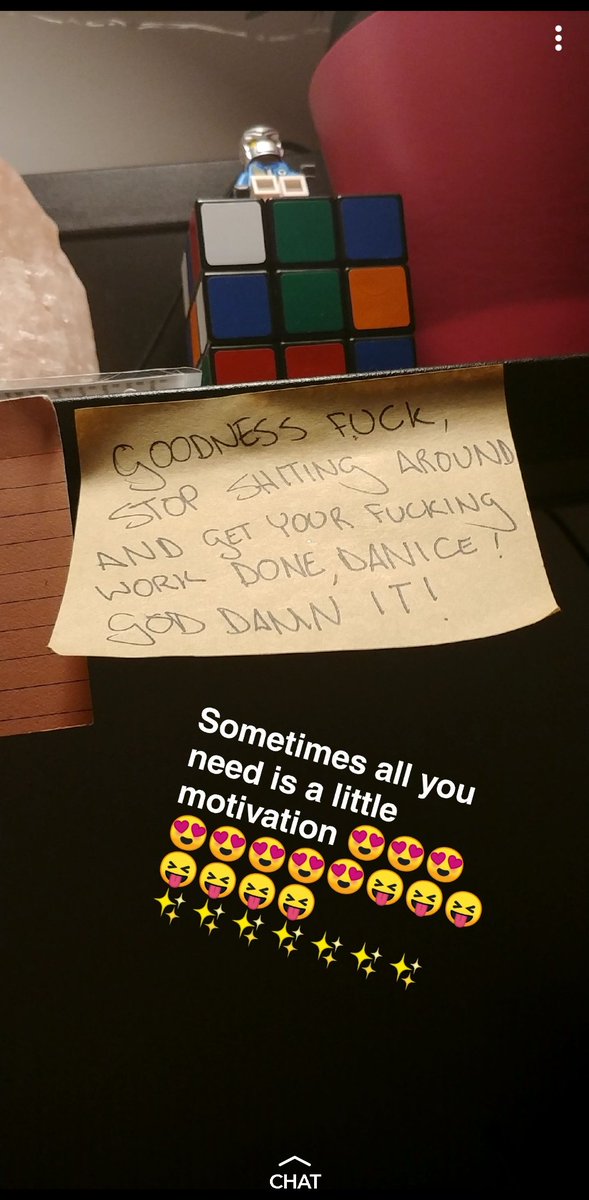 GOODNESS FUCK,
STOP SHITING AROUND
AND GET YOUR FUCKING
WORK DONE, DANICE!
GOD DAMN IT!
Sometimes all you
need is a little
motivation 😍😍😍
😍😍😍😍😍😝😝😝
😝😝😝😝
✨✨✨✨✨✨✨
CHAT